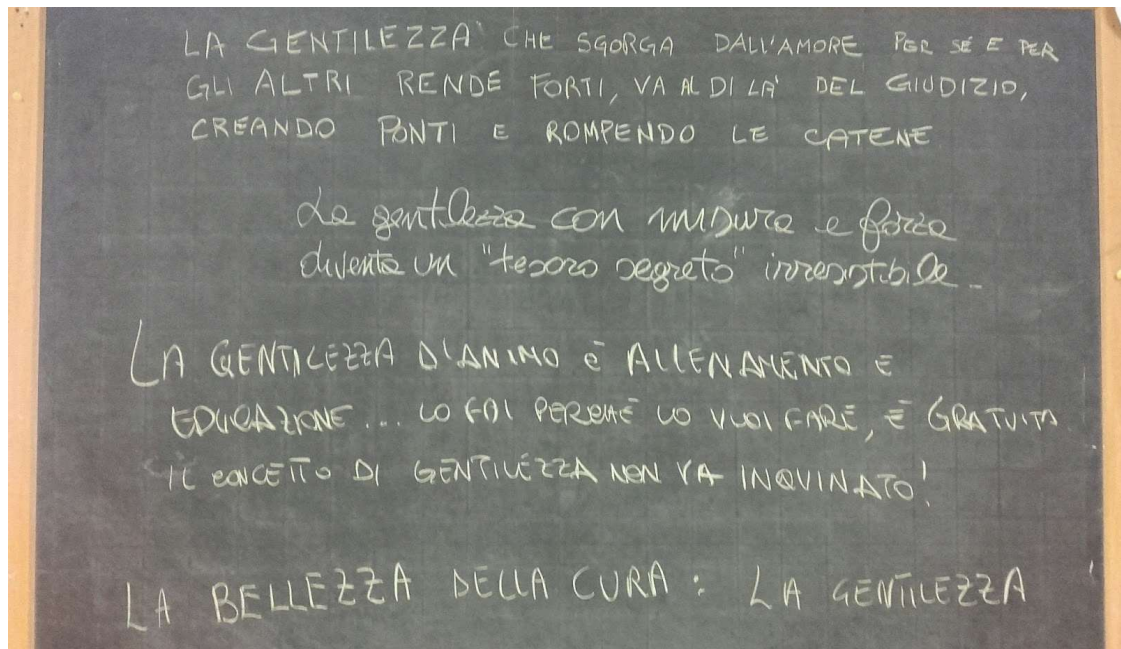 LA GENTILEZZA CHE SGORGA DALL'AMORE PER SÉ E PER
GLI ALTRI RENDE FORTI, VA AL DI LA' DEL GIUDIZIO,
CREANDO PONTI E ROMPENDO LE CATENE
La gentilezza con misura e forza
diventa un "tesoro segreto" irresistibile...
LA GENTILEZZA D'ANIMO è ALLENAMENTO E
EDUCAZIONE... LO FAI PERCHÉ LO VUOI FARE, È GRATUITA.
IL CONCETTO DI GENTILEZZA NON VA INQUINATO!
LA BELLEZZA DELLA CURA: LA GENTILEZZA